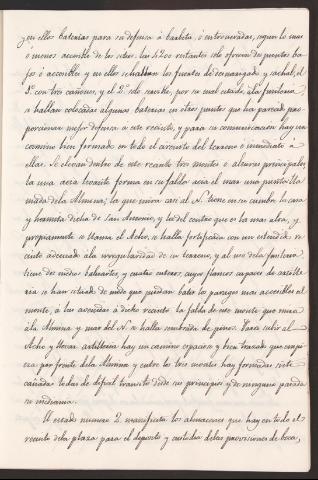 y en ellos baterias para su defensa à barbeta, ò entroneradas, segun lo mas
ò menos accesible de los sitios. Las 4200 restantes solo ofrecen dos puntos ba-
jos ò accesibles y en ellos se hallan los fuertes de desnarigado y sarchal, el
1º con tres cañones, y el 2º solo servible, por su mal estado, à la fusileria.
se hallan colocadas algunas baterias en otros puntos que ha parecido pro-
porcionan mejor defensa à este recinto, y para su comunicacion hay un
camino bien formado en todo el circuito del terreno è inmediato a
ellas. Se elevan dentro de este recinto tres montes ò alturas principales,
la una acia levante forma en su falda acia el mar una punta lla
mada de la Almina; la que mira casi al N. tiene en su cumbre la casa
y hermita dicha de San Antonio, y la del centro que es la mas alta, y
propiamente se llama el Acho, se halla fortificada con un estendido re
cinto adecuado à la irregularidad de su terreno, y al uso de la fusileria.
tiene dos medios baluartes, y cuatro enteros, cuyos flancos capaces de artille
ria se han situado de modo que puedan batir los parages mas accesibles al
monte, ò las avenidas à dicho recinto. La falda de este monte que mira
à la Almina y mar del N. se halla sembrada de pinos. Para subir al
Acho y llevar artilleria hay un camino espacioso y bien trazado que empie
za por frente de la Almina y entre los tres montes hay formadas siete
cañadas todas de dificil transito desde su principio y de ninguna parada
su mediania.
El estado numero 2 manifiesta los almacenes que hay en todo el
recinto de la plaza para el deposito y custodia de las provisiones de boca,